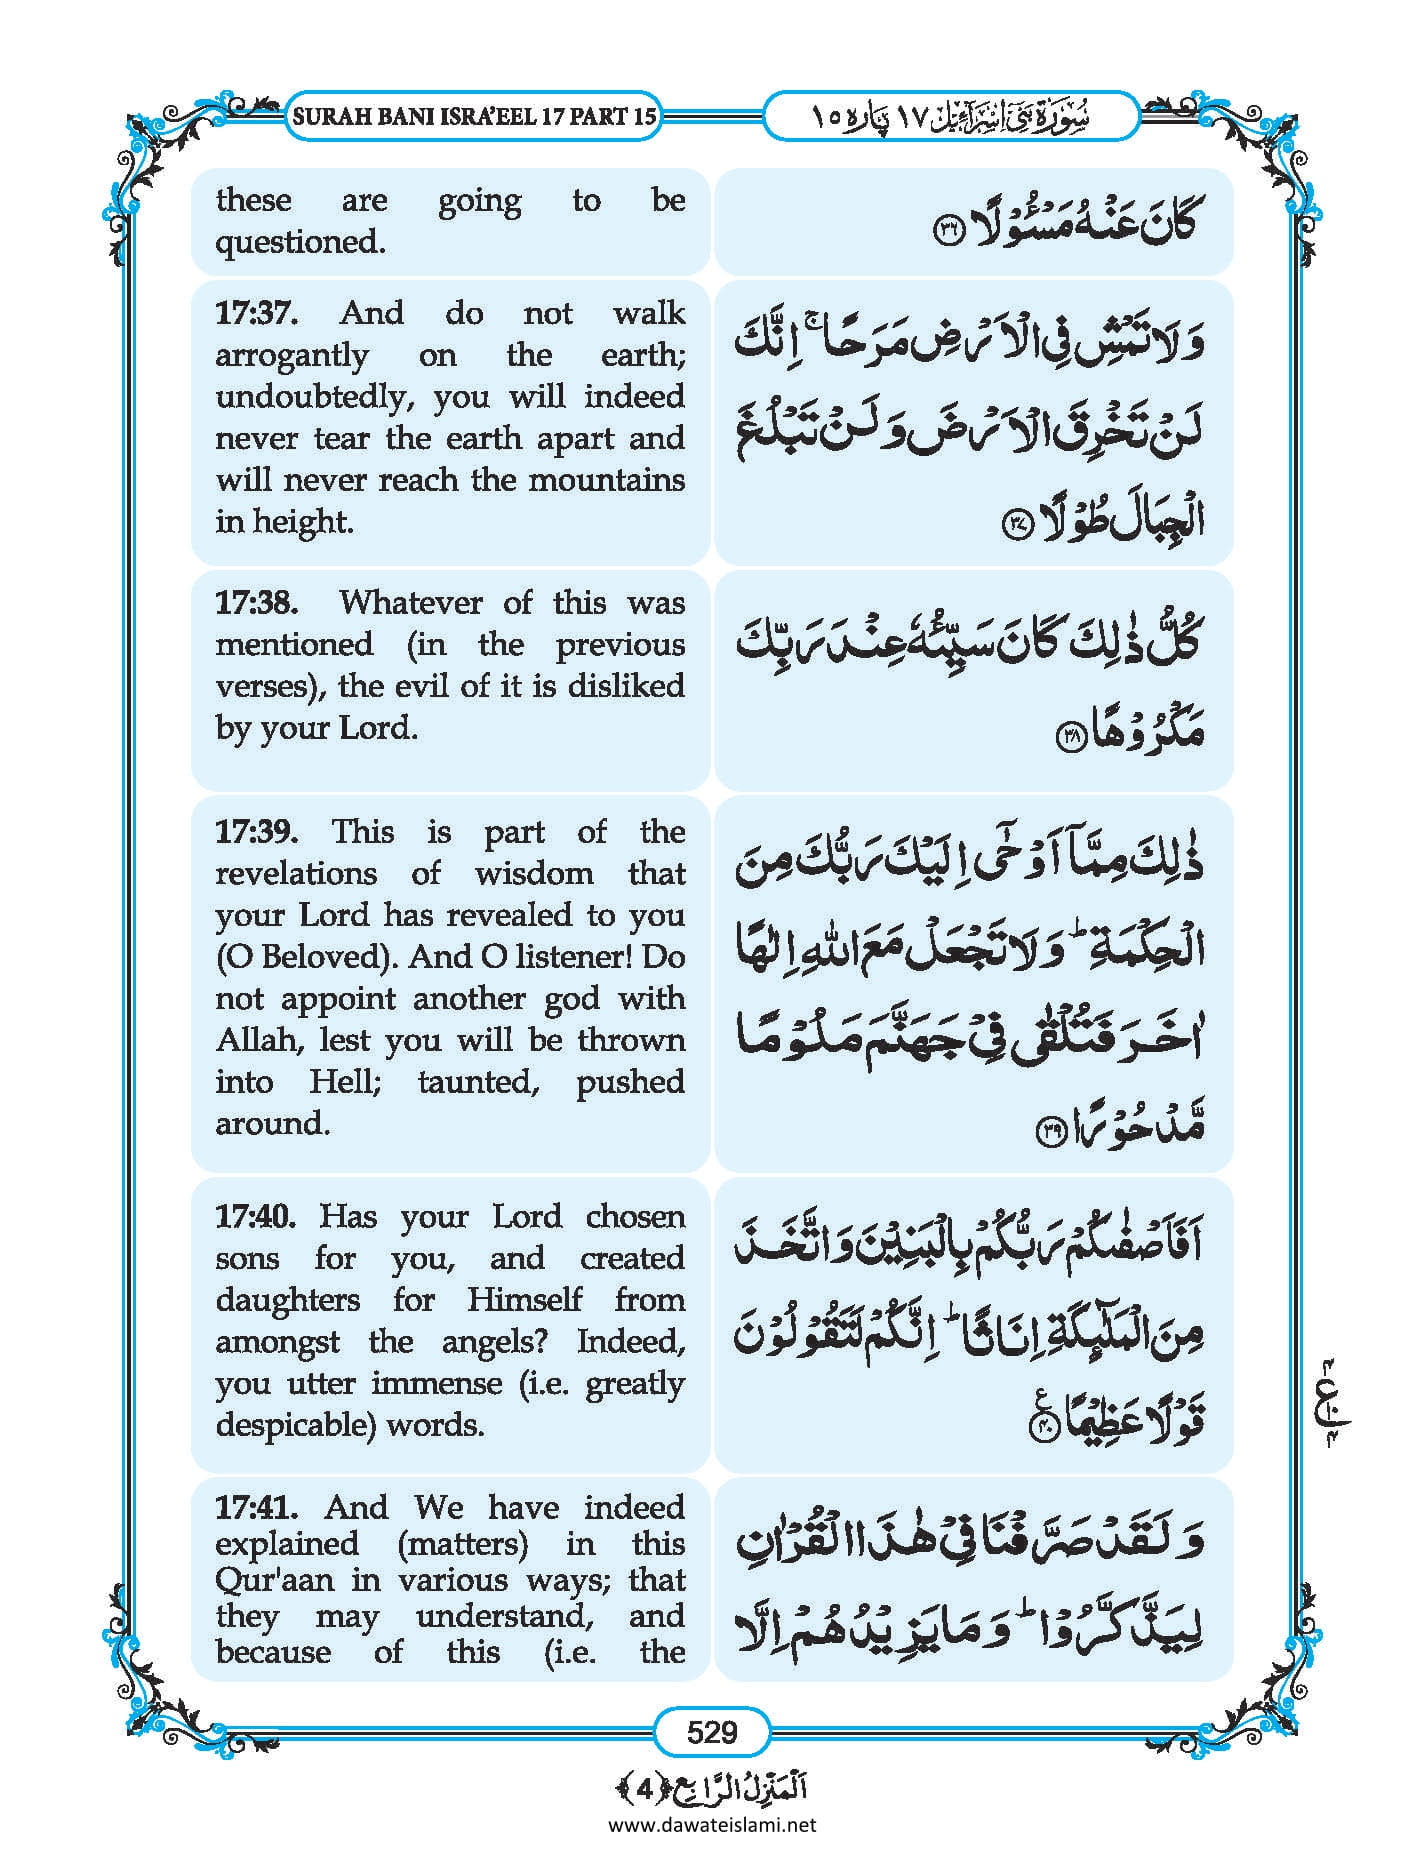 SURAH BANI ISRA’EEL 17 PART 15
سُوْرَةُ بَنِیْۤ اِسْرَآءِیْل ١٧ پارہ ١٥
these are going to be
questioned.
كَانَ عَنْهُ مَسْـُٔوْلًا ﴿۳۶﴾
17:37. And do not walk
arrogantly on the earth;
undoubtedly, you will indeed
never tear the earth apart and
will never reach the mountains
in height.
وَ لَا تَمْشِ فِی الْاَرْضِ مَرَحًا ۚ اِنَّكَ
لَنْ تَخْرِقَ الْاَرْضَ وَ لَنْ تَبْلُغَ
الْجِبَالَ طُوْلًا ﴿۳۷﴾
17:38. Whatever of this was
mentioned (in the previous
verses), the evil of it is disliked
by your Lord.
كُلُّ ذٰلِكَ كَانَ سَیِّئُهٗ عِنْدَ رَبِّكَ
مَكْرُوْهًا ﴿۳۸﴾
17:39. This is part of the
revelations of wisdom that
your Lord has revealed to you
(O Beloved). And O listener! Do
not appoint another god with
Allah, lest you will be thrown
into Hell; taunted, pushed
around.
ذٰلِكَ مِمَّاۤ اَوْحٰۤی اِلَیْكَ رَبُّكَ مِنَ
الْحِكْمَةِ ؕ وَ لَا تَجْعَلْ مَعَ اللهِ اِلٰهًا
اٰخَرَ فَتُلْقٰی فِیْ جَهَنَّمَ مَلُوْمًا
مَّدْحُوْرًا ﴿۳۹﴾
17:40. Has your Lord chosen
sons for you, and created
daughters for Himself from
amongst the angels? Indeed,
you utter immense (i.e. greatly
despicable) words.
اَفَاَصْفٰىكُمْ رَبُّكُمْ بِالْبَنِیْنَ وَ اتَّخَذَ
مِنَ الْمَلٰٓىِٕكَةِ اِنَاثًا ؕ اِنَّكُمْ لَتَقُوْلُوْنَ
قَوْلًا عَظِیْمًا ﴿۴۰﴾ ع
17:41. And We have indeed
explained (matters) in this
Qur'aan in various ways; that
they may understand, and
because of this (i.e. the
وَ لَقَدْ صَرَّفْنَا فِیْ هٰذَا الْقُرْاٰنِ
لِیَذَّكَّرُوْا ؕ وَ مَا یَزِیْدُهُمْ اِلَّا
529
اَلْمَنْزِلُ الرَّابِع ﴿4﴾
www.dawateislami.net